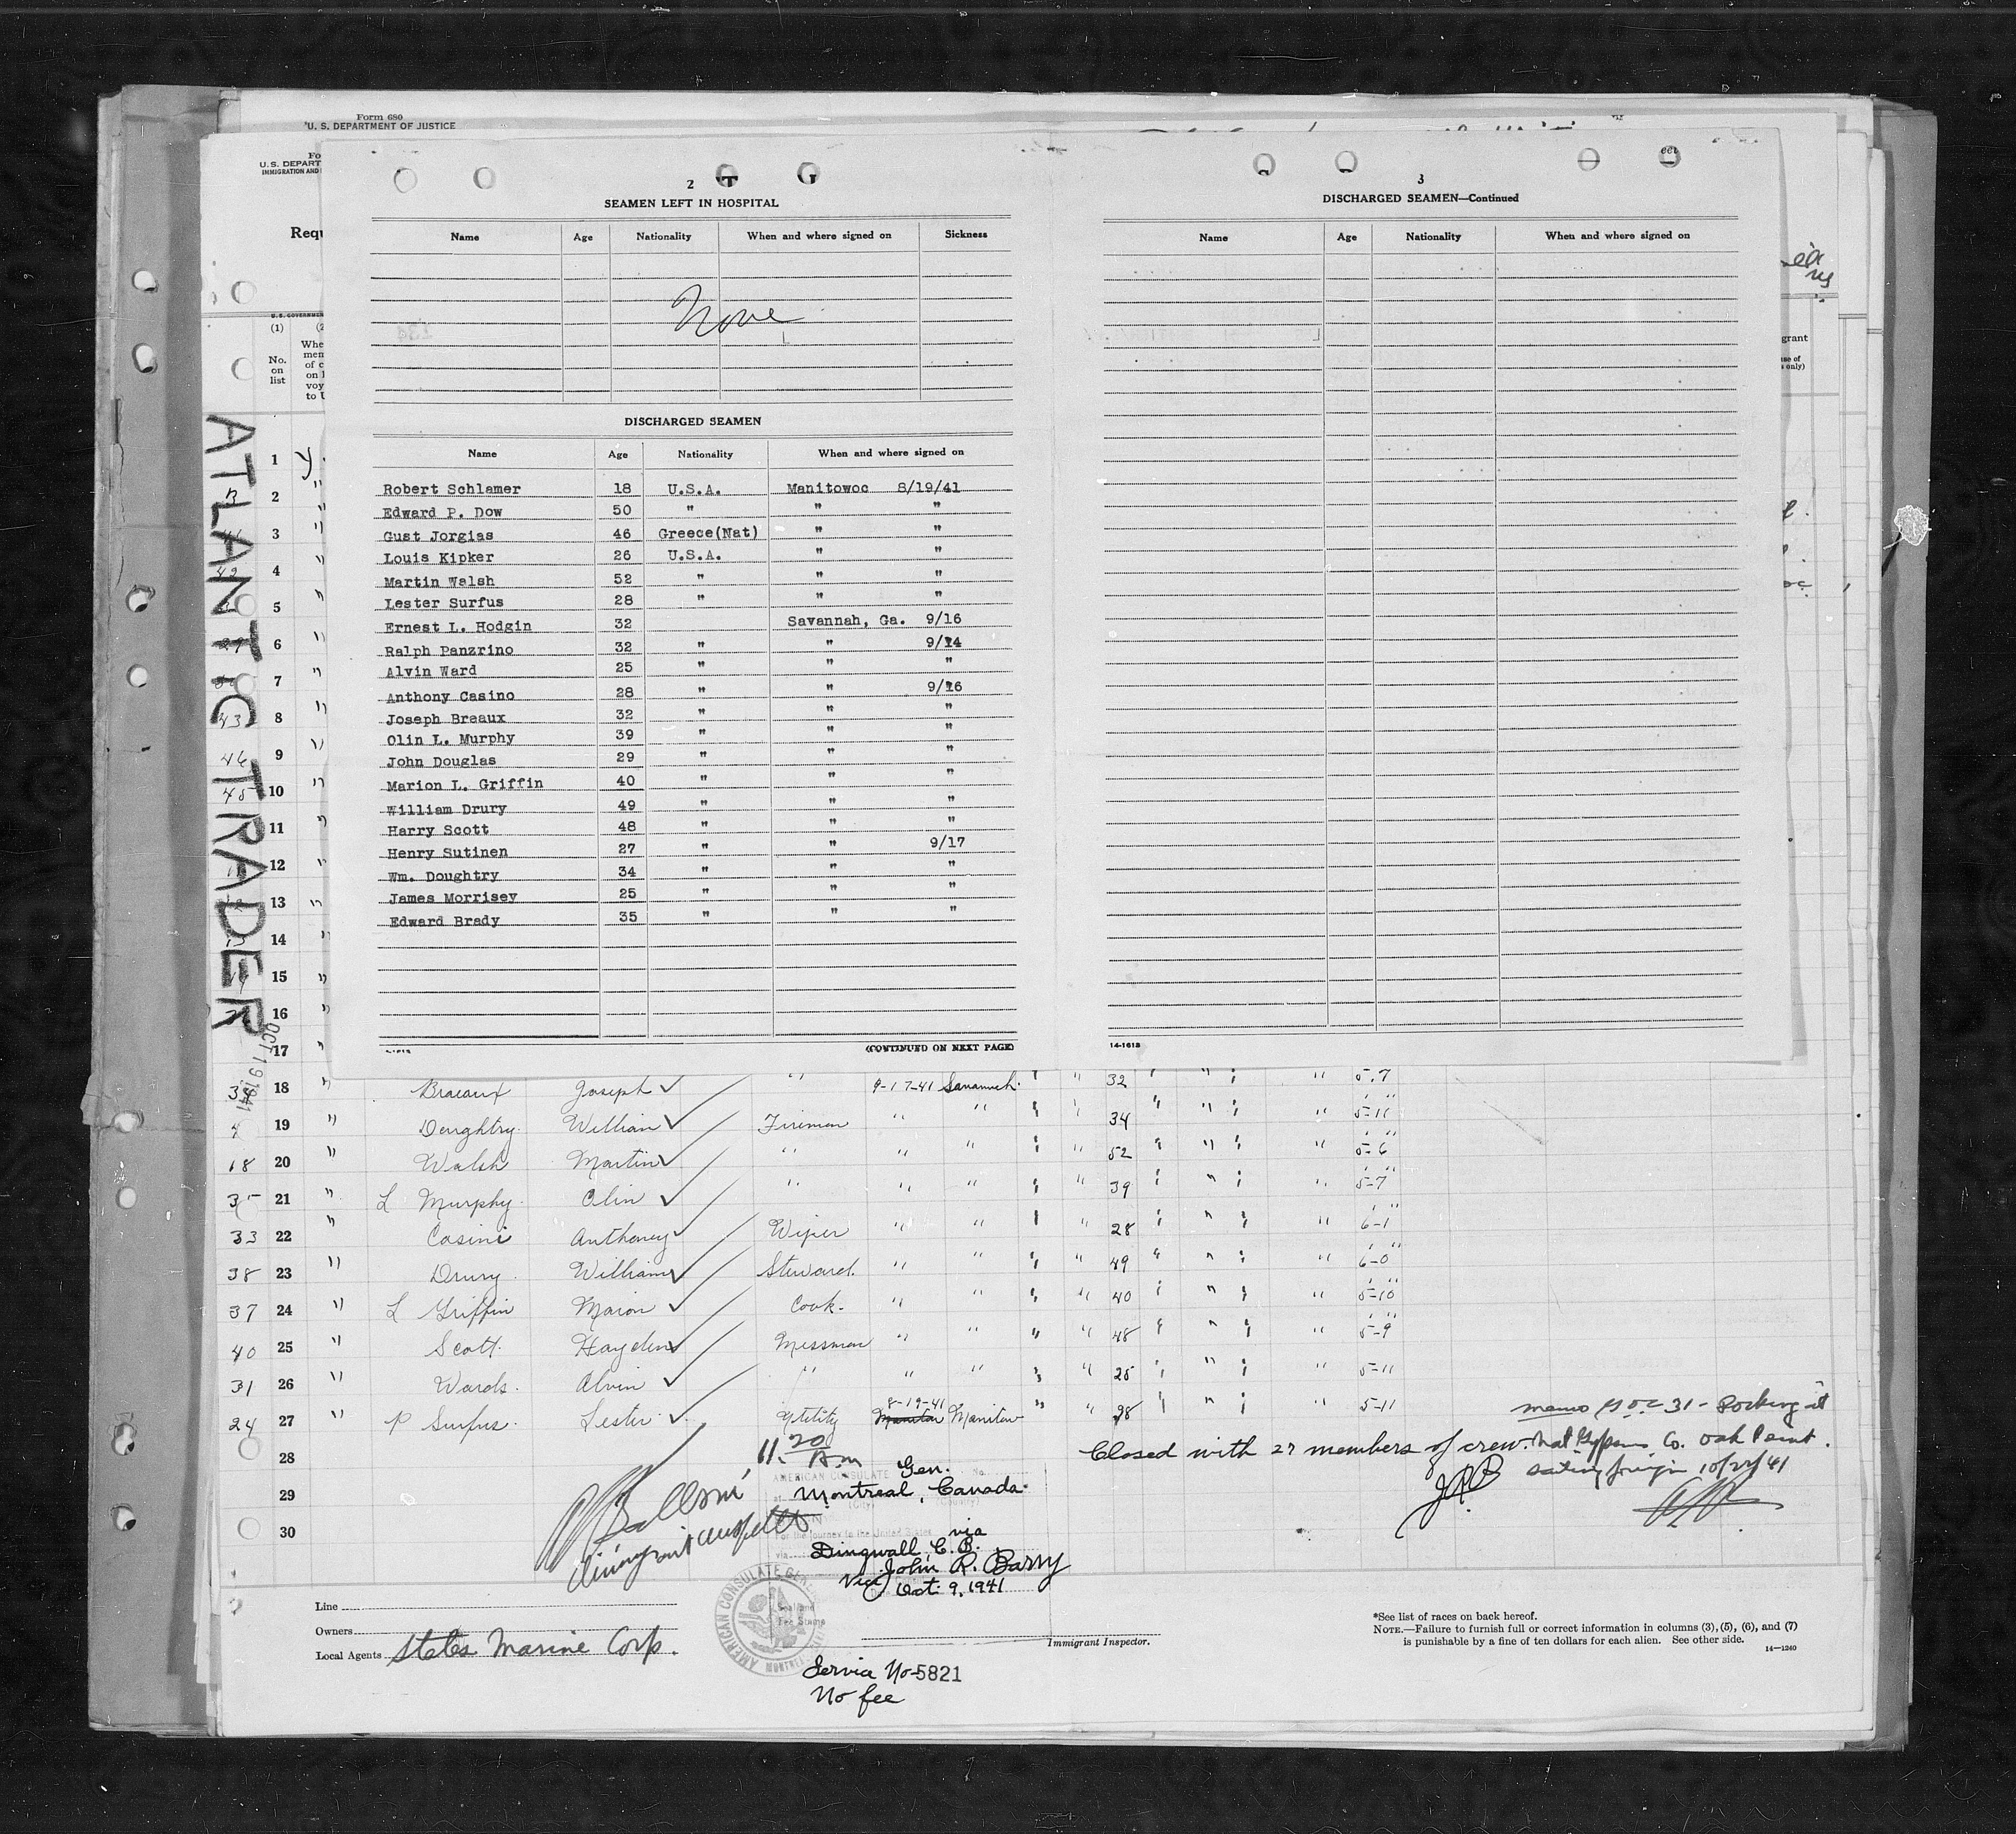 Form 680
U. S. DEPARTMENT OF JUSTICE
U. S. DEPART
IMMIGRATION AND
Requ
2
SEAMEN LEFT IN HOSPITAL
Name Age Nationality When and where signed on Sickness
None
DISCHARGED SEAMEN
Name Age Nationality When and where signed on
Robert Schlamer 18 U.S.A. Manitowoc 8/19/41
Edward P. Dow 50 " " "
Gust Jorgias 46 Greece(Nat) " "
Louis Kipker 26 U.S.A. " "
Martin Walsh 52 " " "
Lester Surfus 28 " " "
Ernest L. Hodgin 32 Savannah, Ga. 9/16
Ralph Panzrino 32 " " 9/14
Alvin Ward 25 " " "
Anthony Casino 28 " " 9/16
Joseph Breaux 32 " " "
Olin L. Murphy 39 " " "
John Douglas 29 " " "
Marion L. Griffin 40 " " "
William Drury 49 " " "
Harry Scott 48 " " "
Henry Sutinen 27 " " 9/17
Wm. Doughtry 34 " " "
James Morrisey 25 " " "
Edward Brady 35 " " "
(CONTINUED ON NEXT PAGE)
3
DISCHARGED SEAMEN—Continued
Name Age Nationality When and where signed on
14-1613
ATLANTIC TRADER
OCT 19 1941
(1)
No. on list
1
2
3
4
5
6
7
8
9
10
11
12
13
14
15
16
17
18 " Braeaux Joseph " 9-17-41 Savannah " " 32 " " " " 5-7
4 19 " Doughtry William Fireman " " " " 34 " " " " 5-11
18 20 " Walsh Martin " " " " " 52 " " " " 5-6
35 21 " L Murphy Olin " " " " " 39 " " " " 5-7
33 22 " Casini Anthoney Wiper " " " " 28 " " " " 6-1
38 23 " Drury William Steward " " " " 49 " " " " 6-0
37 24 " L Griffin Maion Cook " " " " 40 " " " " 5-10
40 25 " Scott Hayden Messman " " " " 48 " " " " 5-9
31 26 " Wards Alvin " " " " " 25 " " " " 5-11
24 27 " P Surfus Lester Utility 8-19-41 Manitow " " 28 " " " " 5-11
28
29
30
11.20 A.m
Closed with 27 members of crew.
Co. Oak Point.
sailing foreign 10/22/41
JRB
AMERICAN CONSULATE Gen.
Montreal, Canada
(City) (Country)
For the journey to the United States
via
Dingwall, C. B.
John R. Barry
Vice
Oct. 9, 1941
AMERICAN CONSULATE GENERAL
MONTREAL
Fee Stamp
Service No. 5821
No fee
Line
Owners
Local Agents States Marine Corp.
Immigrant Inspector.
*See list of races on back hereof.
NOTE.—Failure to furnish full or correct information in columns (3), (5), (6), and (7)
is punishable by a fine of ten dollars for each alien. See other side.
14—1240